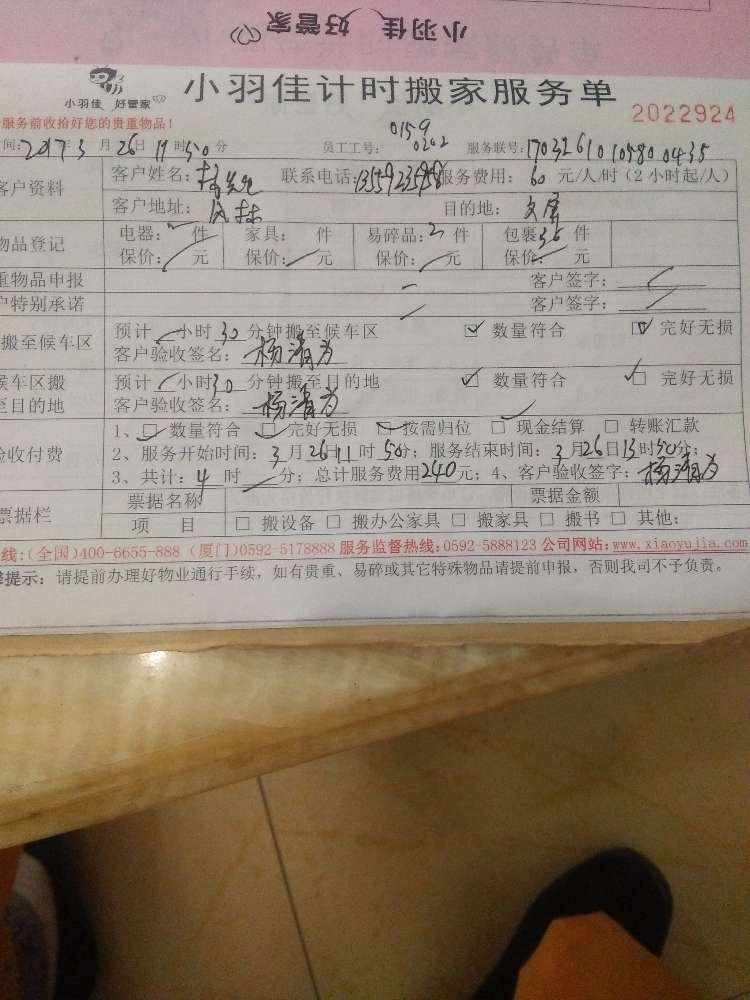 小羽佳 好管家
小羽佳 好管家
小羽佳计时搬家服务单
2022924
服务前收拾好您的贵重物品!
间: 2017年3月26日11时50分 员工工号: 0159 0202 服务联号: 170326101058000435
客户资料 客户姓名: 联系电话: 13559235958 服务费用: 60 元/人/时(2小时起/人)
客户地址: 目的地:
物品登记 电器: 件 家具: 件 易碎品: 2 件 包裹 36 件
保价: 元 保价: 元 保价: 元 保价: 元
重物品申报 客户签字:
户特别承诺 客户签字:
搬至候车区 预计 小时 30 分钟搬至候车区 ☑ 数量符合 ☑ 完好无损
客户验收签名: 杨清为
候车区搬至目的地 预计 小时 30 分钟搬至目的地 ☑ 数量符合 ☑ 完好无损
客户验收签名: 杨清为
验收付费 1、□ 数量符合 □ 完好无损 □ 按需归位 □ 现金结算 □ 转账汇款
2、服务开始时间: 3月26日11时50分; 服务结束时间: 3月26日13时50分;
3、共计: 4 时 分; 总计服务费用240元; 4、客户验收签字: 杨清为
票据栏 票据名称 票据金额
项 目 □ 搬设备 □ 搬办公家具 □ 搬家具 □ 搬书 □ 其他:
线:(全国)400-6655-888 (厦门)0592-5178888 服务监督热线:0592-5888123 公司网站:www.xiaoyujia.com
提示: 请提前办理好物业通行手续,如有贵重、易碎或其它特殊物品请提前申报,否则我司不予负责。